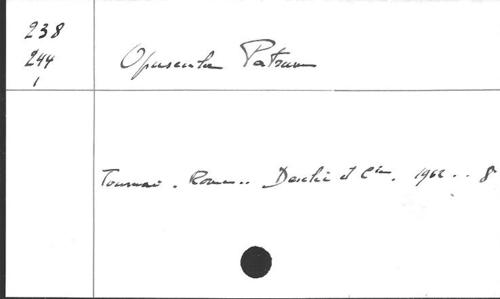 238
244
1
Opuscula Patrum
Tournai. Rome.. Desclée et Cie. 19.. 8